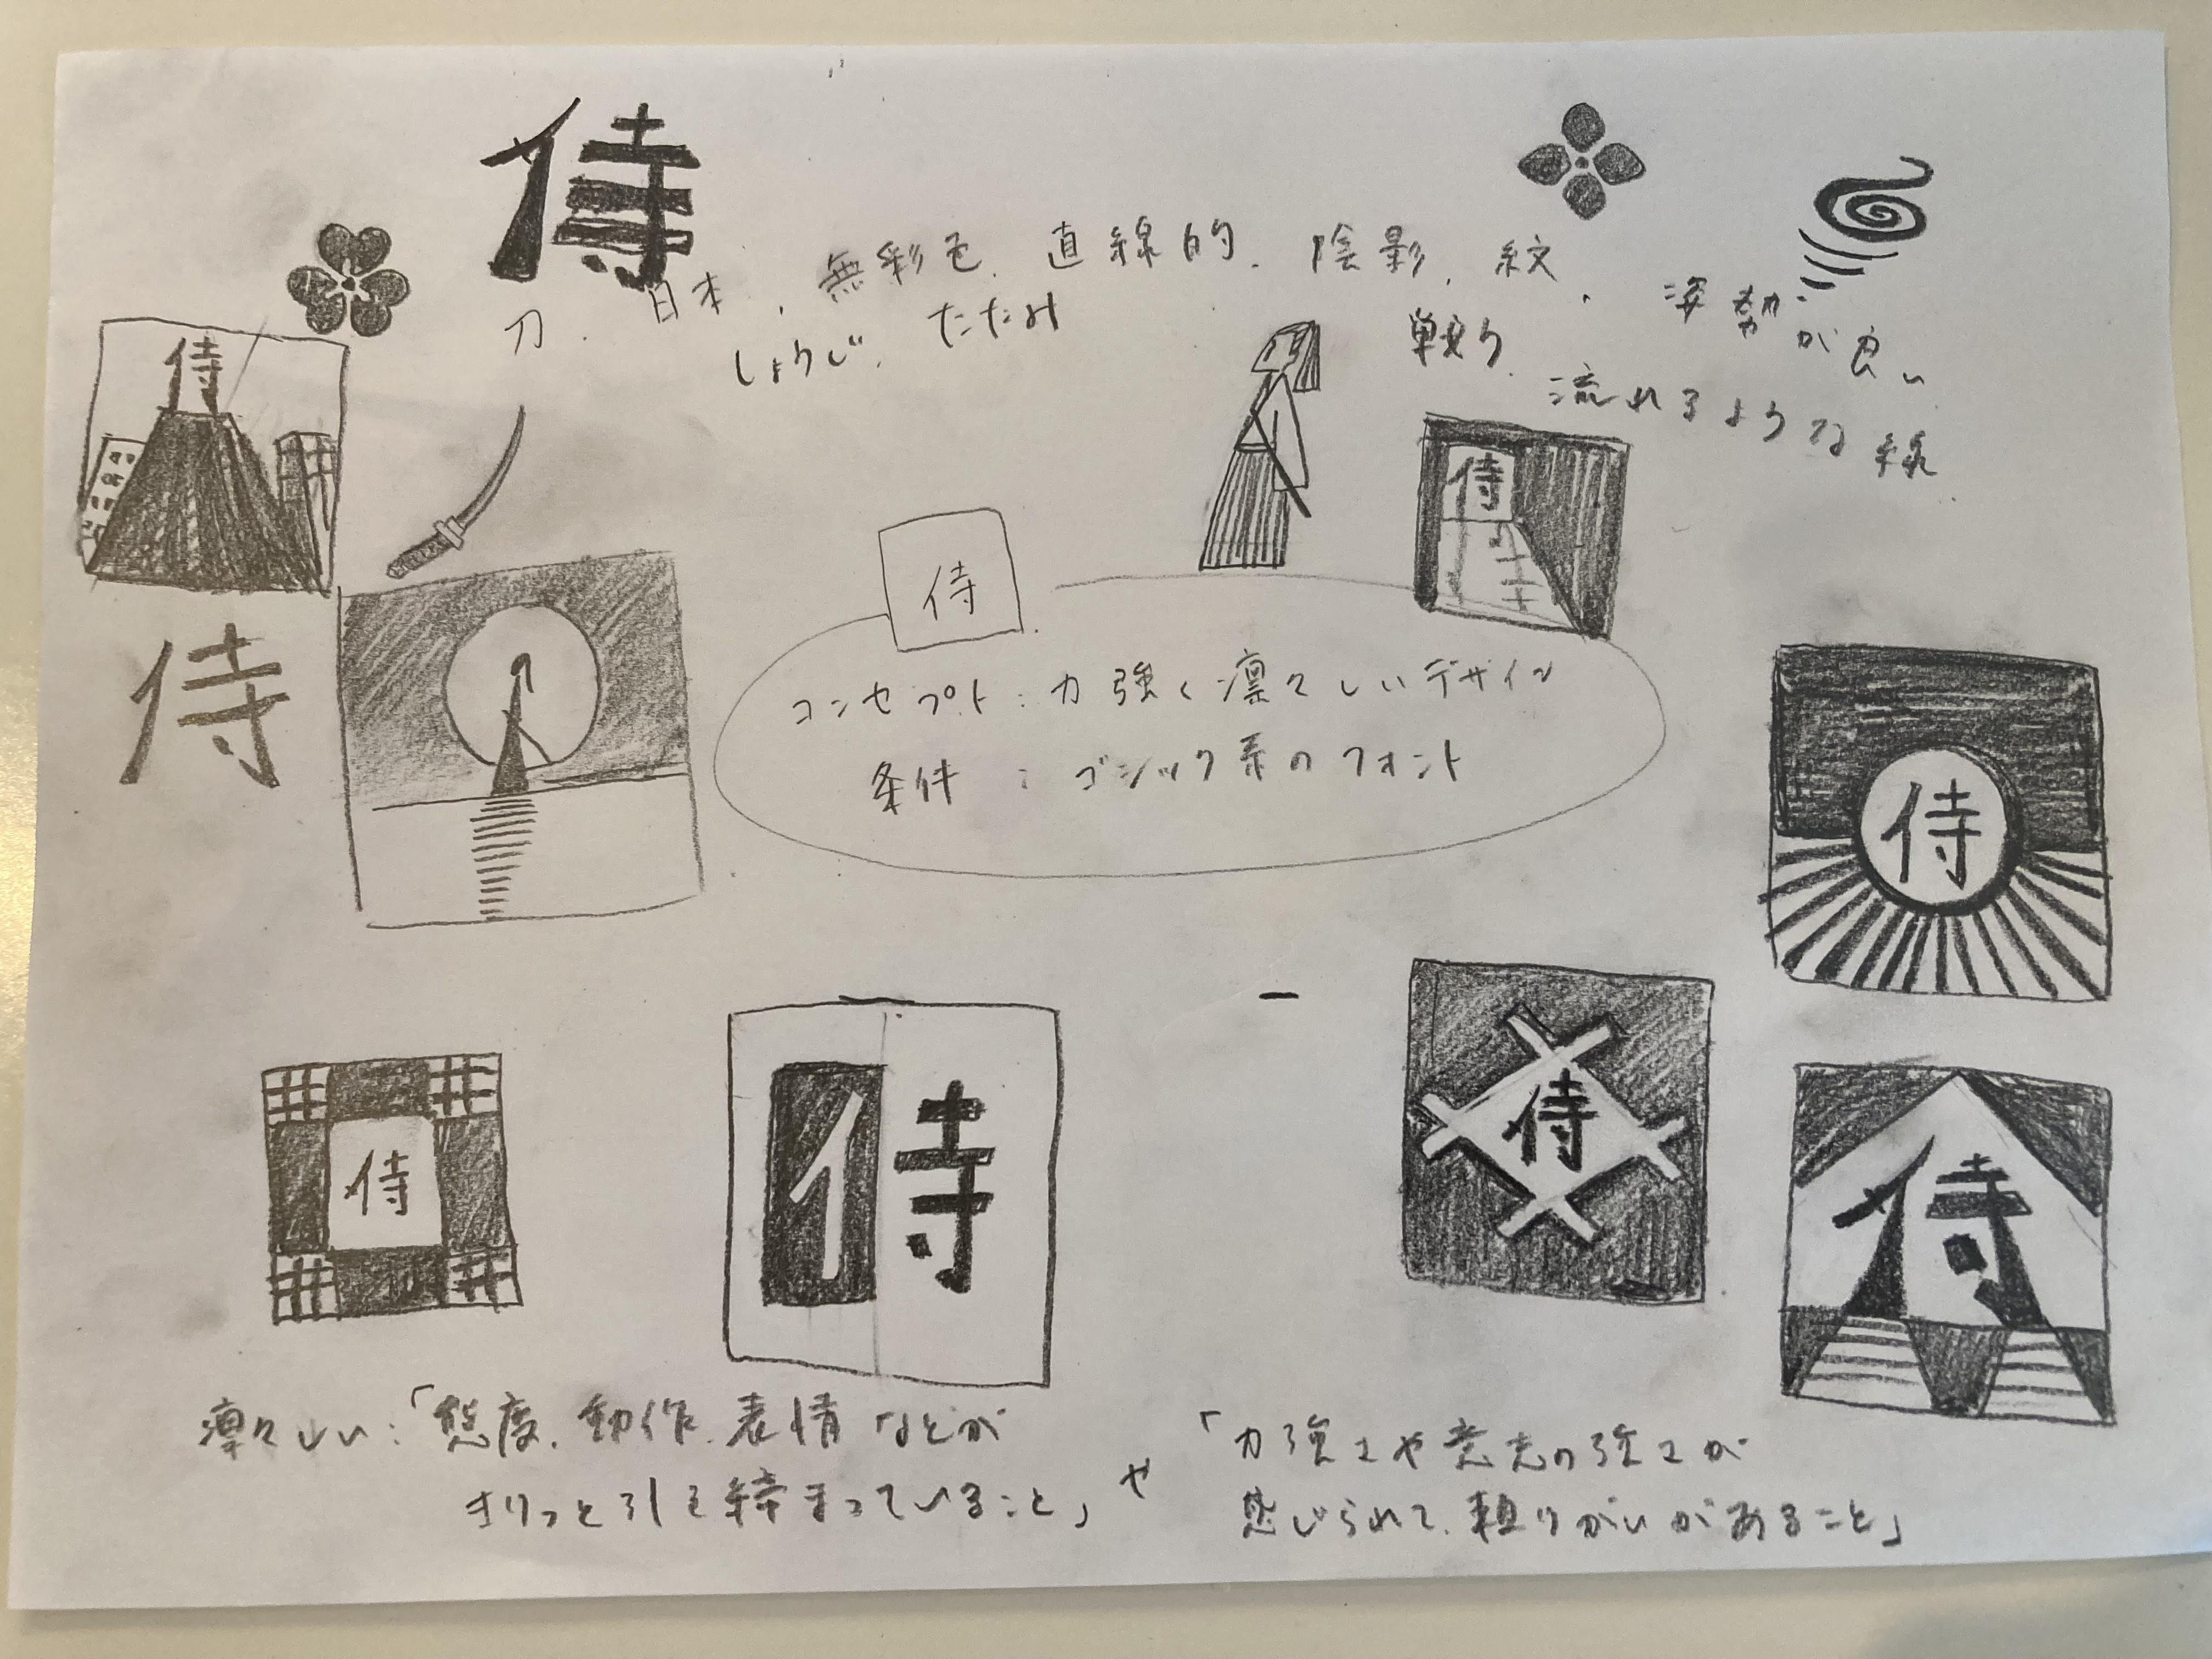 侍
刀、日本、無彩色、直線的、陰影、紋、姿勢が良い
しょうじ、たたみ
戦う、流れるような線
侍
侍
侍
侍
コンセプト：力強く凛々しいデザイン
条件：ゴシック系のフォント
侍
侍
侍
侍
侍
凛々しい：「態度、動作、表情などが
キリっと引き締まっていること」や
「力強さや意志の強さが
感じられて、頼りがいがあること」